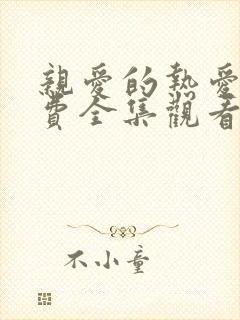 親愛的熱愛
費全集觀看
不小童